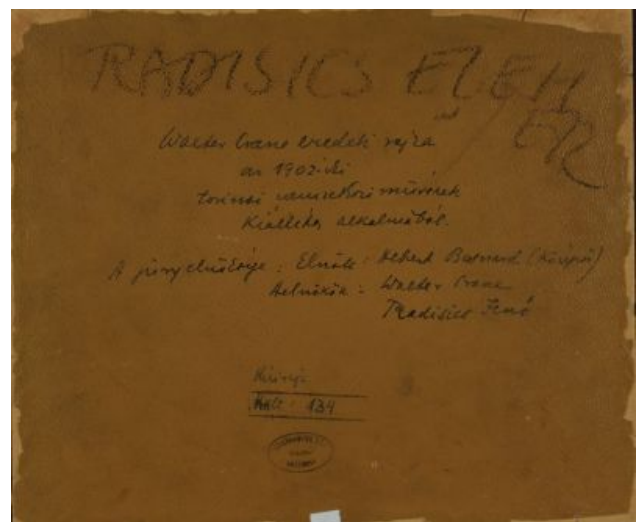 RADISICS ELEM
ÉR
Walter Crane eredeti rajza
az 1902-iki
torinói nemzetközi műv
Kiállítás alkalmából.
A jury elnöksége: Elnök: Albert Besnard
Alelnökök: Walter Crane
Radisics Jenő
134